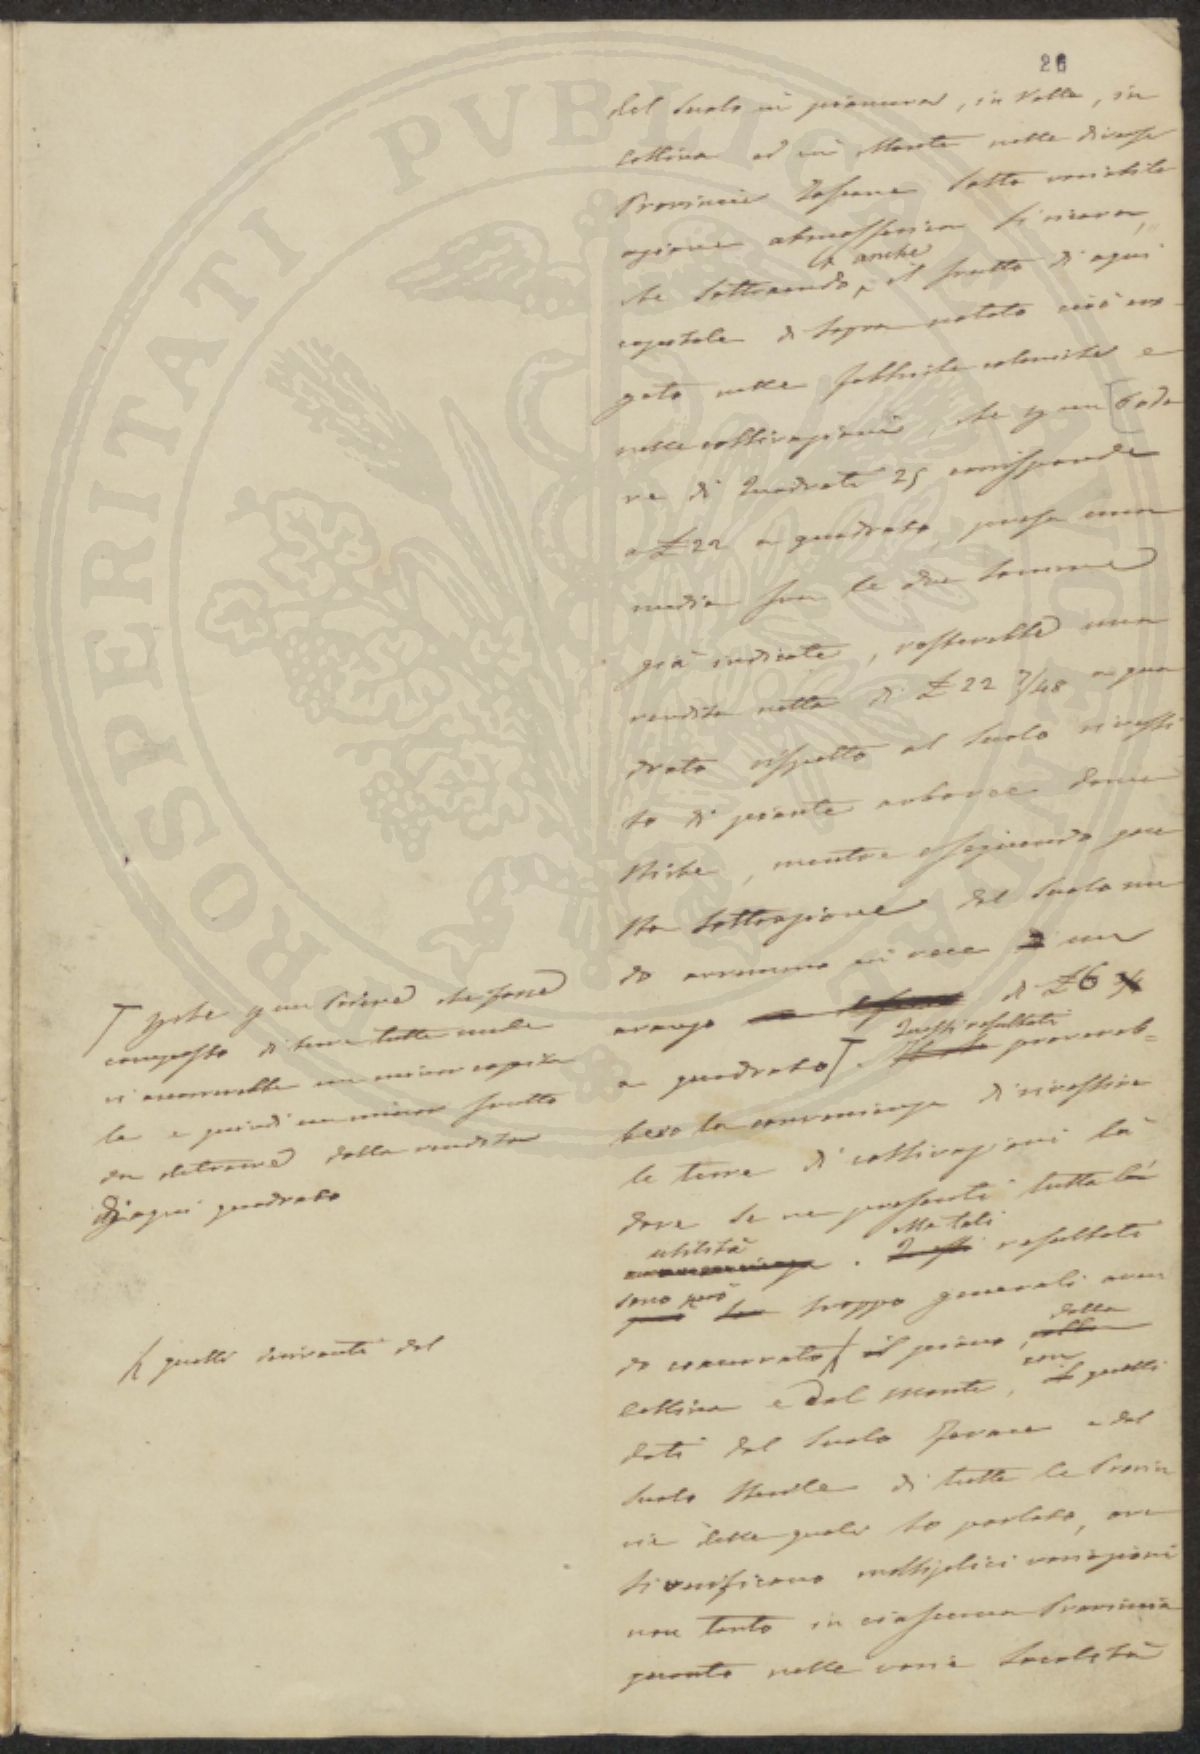 26
del Suolo in pianura, in Valle, in
Collina ed in Monte nelle diverse
Provincie Toscane sotto variabile
azione atmosferica si ricava,
e anche
che sottraendo, il frutto di ogni
capitale di sopra notato cioè ero-
gato nelle fabbriche coloniche e
nelle coltivazioni, che p. un Pode
re di Quadrati 25 corrisponde
a £ 22 a quadrato, presa una
media fra le due somme
già indicate, resterebbe una
rendita netta di £ 22 7/48 a qua
drato rispetto al Suolo rivesti
to di piante arboree dome
stiche, mentre eseguendo que
sta sottrazione del Suolo nu
do avremmo in vece un
avanzo di £ 6
Questi resultati
a quadrato proverebb=
bero la convenienza di rivestire
le terre di coltivazioni là
dove se ne presenti tutta la
utilità . Ma tali resultati
sono però troppo generali aven
do concorrato il piano, dalla
Collina e dal Monte, con quelli
dati del Suolo ferace e del
Suolo sterile di tutte le Provin
cie delle quali ho parlato, ove
si verificano molteplici variazioni
non tanto in ciascuna Provincia
quanto nelle varie località
che p. un Podere che fosse
composto di terre tutte nude
vi occorrerebbe un minor capita
le e quindi un minor frutto
da detrarre dalla rendita
di ogni quadrato
quelli derivanti dal
PROSPERITATI PVBLICAE AVGENDAE